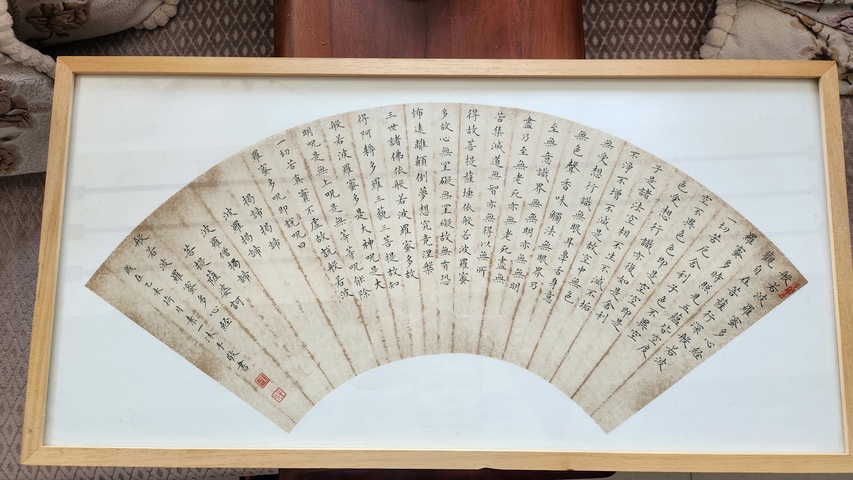 般若波羅蜜多心經
觀自在菩薩行深般若波
羅蜜多時照見五蘊皆空度
一切苦厄舍利子色不異空
空不異色色即是空空即是
色受想行識亦復如是舍利
子是諸法空相不生不滅不垢
不淨不增不減是故空中無色
無受想行識無眼耳鼻舌身意
無色聲香味觸法無眼界乃
至無意識界無無明亦無無明
盡乃至無老死亦無老死盡無
苦集滅道無智亦無得以無所
得故菩提薩埵依般若波羅蜜
多故心無罣礙無罣礙故無有恐
怖遠離顛倒夢想究竟涅槃
三世諸佛依般若波羅蜜多故
得阿耨多羅三藐三菩提故知
般若波羅蜜多是大神呪是大
明呪是無上呪是無等等呪能除
一切苦真實不虛故說般若波
羅蜜多呪即說呪曰
揭諦揭諦
波羅揭諦
波羅僧揭諦
菩提薩婆訶
般若波羅蜜多心經
歲在乙未荷月素一沐手敬書